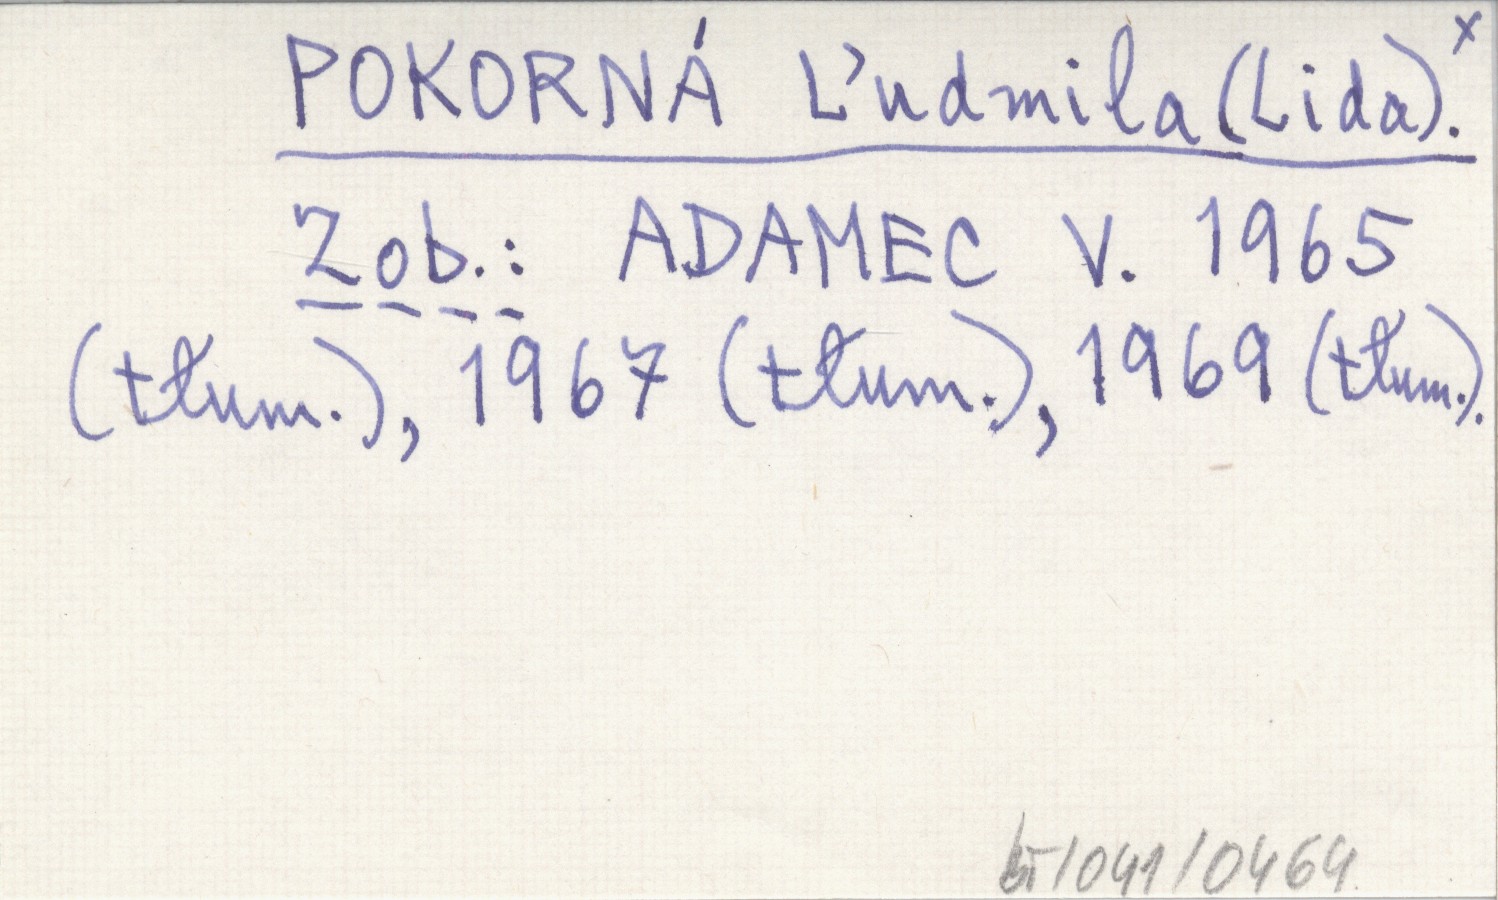 POKORNÁ Ľudmila (Lida). x
Zob.: ADAMEC V. 1965
(tłum.), 1967 (tłum.), 1969 (tłum.).
/041/0464